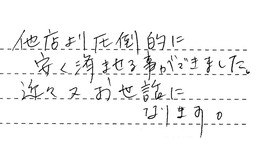 他店より圧倒的に
安く済ませる事ができました。
近々又お世話に
なります。